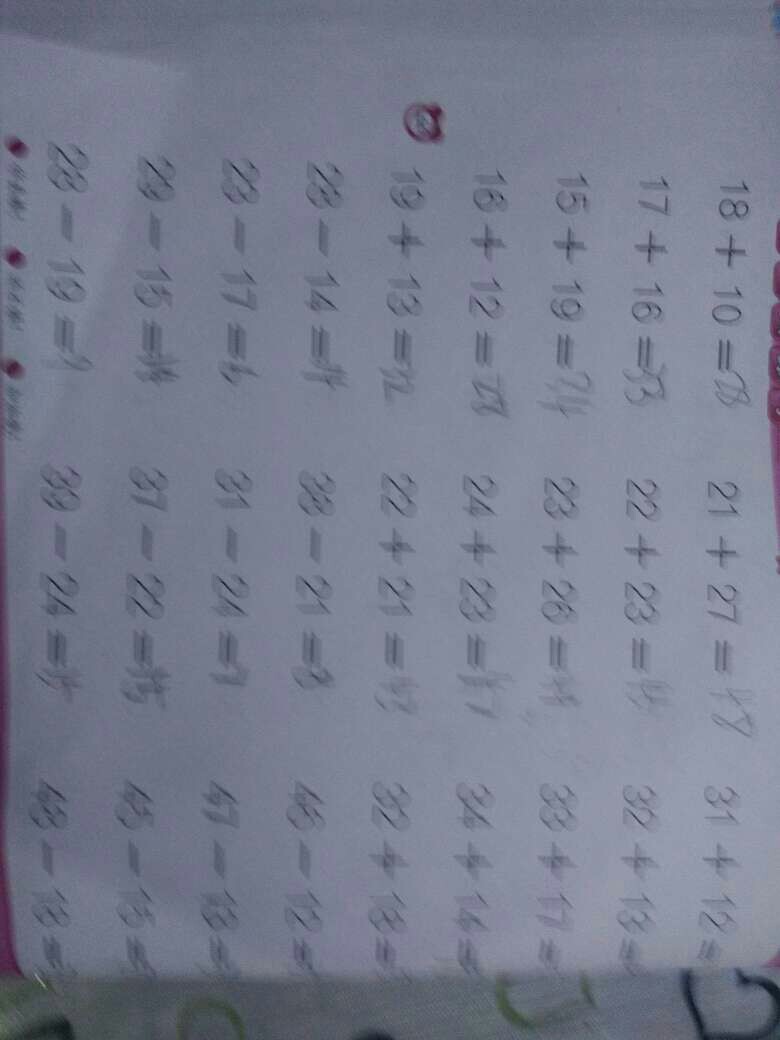 18 + 10 = 28 21 + 27 = 48 31 + 12 =
17 + 16 = 33 22 + 23 = 45 32 + 13 =
15 + 19 = 34 23 + 26 = 33 + 17 =
16 + 12 = 28 24 + 23 = 47 34 + 14 =
19 + 13 = 32 22 + 21 = 43 32 + 18 =
28 − 14 = 14 − 21 = − 12 =
23 − 17 = 6 31 − 24 = 7 47 − 13 =
29 − 15 = 14 37 − 22 = 15 45 − 15 =
28 − 19 = 9 39 − 24 = 15 − 18 =